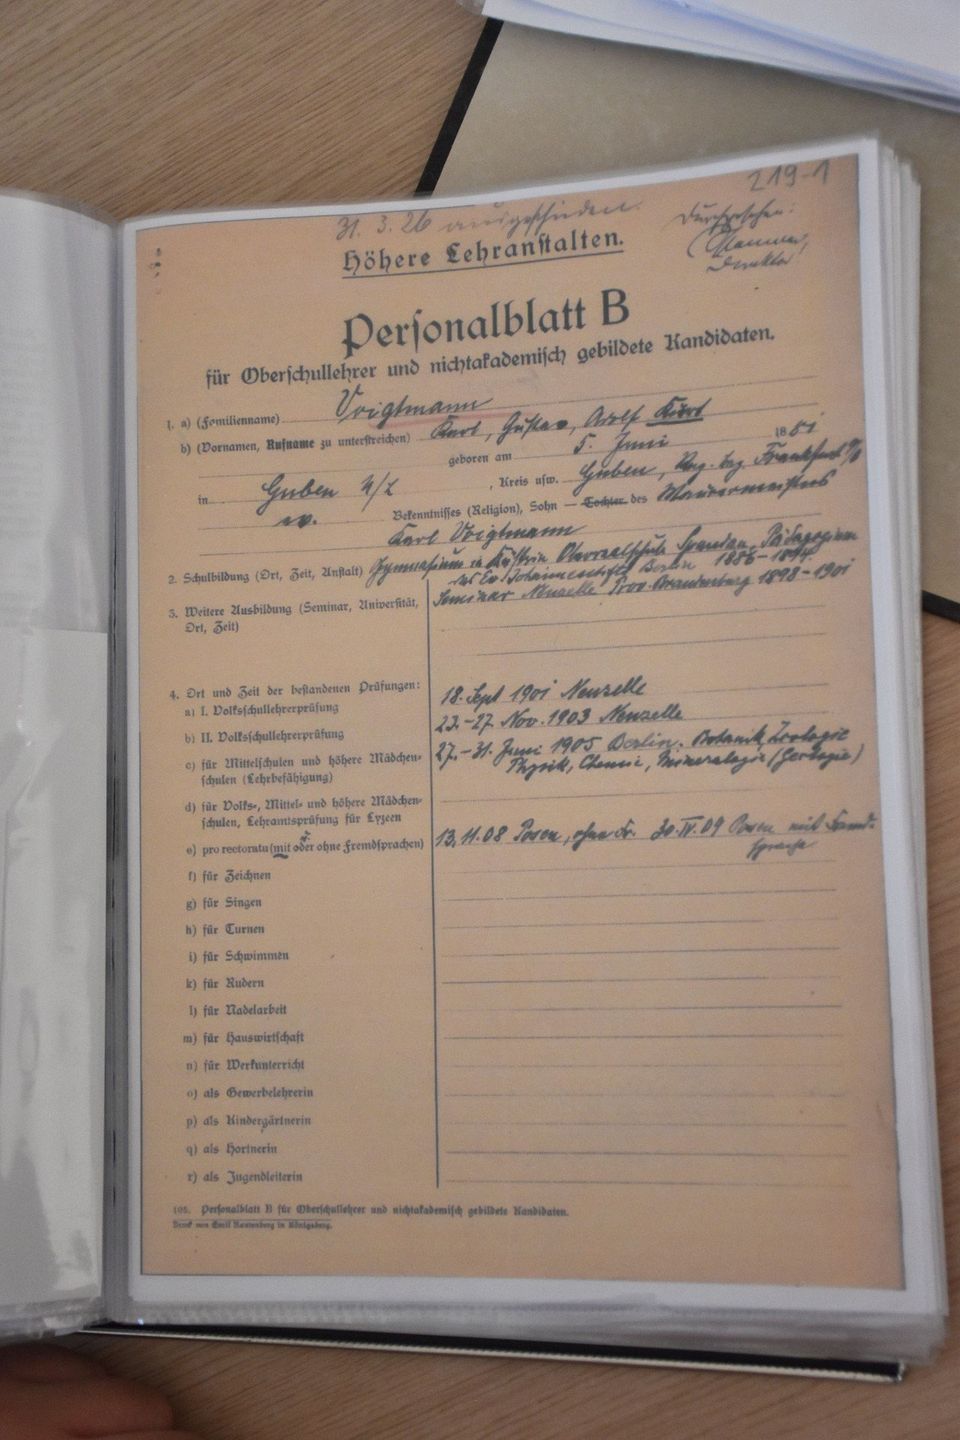 219-1
31. 3. 26 ausgeschieden.
Durchgesehen:
Direktor
Höhere Lehranstalten.
Personalblatt B
für Oberschullehrer und nichtakademisch gebildete Kandidaten.
1. a) (Familienname) Voigtmann
b) (Vornamen, Rufname zu unterstreichen) Karl, Gustav, Adolf Kurt
geboren am 5. Juni 1881
in Guben N/L, Kreis usw. Guben, Reg. bez. Frankfurt a/O
ev. Bekenntnisses (Religion), Sohn — Tochter des Maurermeisters
Karl Voigtmann
2. Schulbildung (Ort, Zeit, Anstalt) Gymnasium in Küstrin Oberrealschule Spandau, Pädagogium
des Ev. Johannesstifts Berlin 1886-1894.
3. Weitere Ausbildung (Seminar, Universität, Seminar Neuzelle Prov. Brandenburg 1898-1901
Ort, Zeit)
4. Ort und Zeit der bestandenen Prüfungen:
a) I. Volksschullehrerprüfung 18. Sept 1901 Neuzelle
b) II. Volksschullehrerprüfung 23.-27. Nov. 1903 Neuzelle
c) für Mittelschulen und höhere Mädchen- 27.-31. Juni 1905 Berlin. Botanik, Zoologie
schulen (Lehrbefähigung) Physik, Chemie, Mineralogie (Geologie)
d) für Volks-, Mittel- und höhere Mädchen-
schulen, Lehramtsprüfung für Lyzeen
e) pro rectoratu (mit oder ohne Fremdsprachen) 13. 11. 08 Posen, ohne Fr. 30. IV. 09 Posen mit Fremd-
sprache
f) für Zeichnen
g) für Singen
h) für Turnen
i) für Schwimmen
k) für Rudern
l) für Nadelarbeit
m) für Hauswirtschaft
n) für Werkunterricht
o) als Gewerbelehrerin
p) als Kindergärtnerin
q) als Hortnerin
r) als Jugendleiterin
105. Personalblatt B für Oberschullehrer und nichtakademisch gebildete Kandidaten.
Druck von Emil Rautenberg in Königsberg.